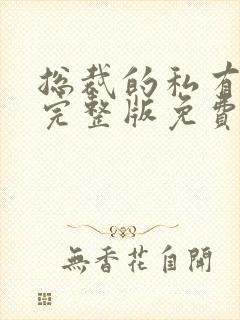 总裁的私有
完整版免费
無香花自開